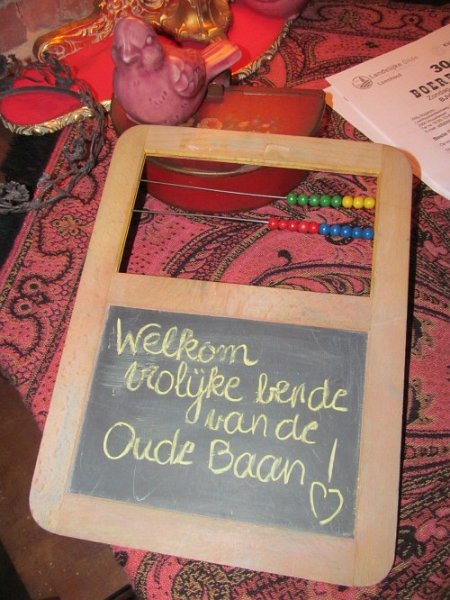 Landelijke Gilde
30
BOERE
Welkom
vrolijke bende
van de
Oude Baan!